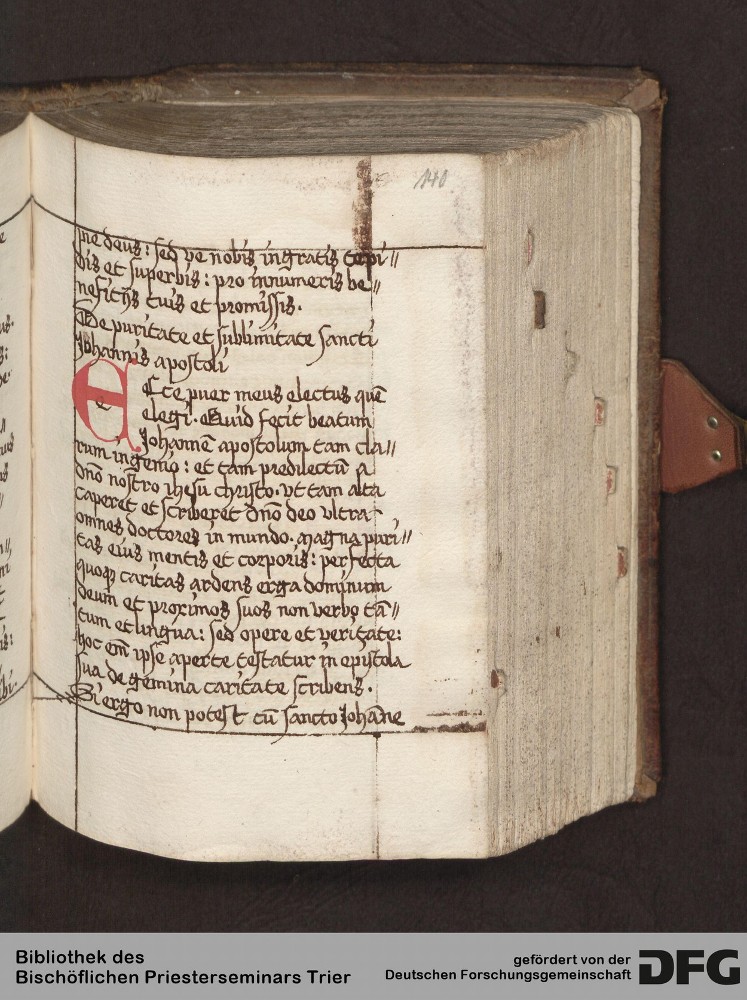 140
me deus: sed ve nobis ingratis tepi//
dis et superbis: pro innumeris be//
nefitijs tuis et promissis.
De puritate et sublimitate sancti
Johannis apostoli
Ecce puer meus electus quē
elegi. Quid fecit beatum
Johannē apostolum tam cla//
rum ingenio: et tam predilectū a
dnō nostro ihesu christo. vt tam alta
caperet et scriberet dnō deo vltra
omnes doctores in mundo. magna puri//
tas eius mentis et corporis: perfecta
quoqꝫ caritas ardens erga dominum
deum et proximos suos non verbo tā//
tum et lingua: sed opere et veritate:
hoc em̄ ipse aperte testatur in epistola
sua de gemina caritate scribens.
Si ergo non potest cū sancto Johāne
Bibliothek des
Bischöflichen Priesterseminars Trier
gefördert von der
Deutschen Forschungsgemeinschaft
DFG